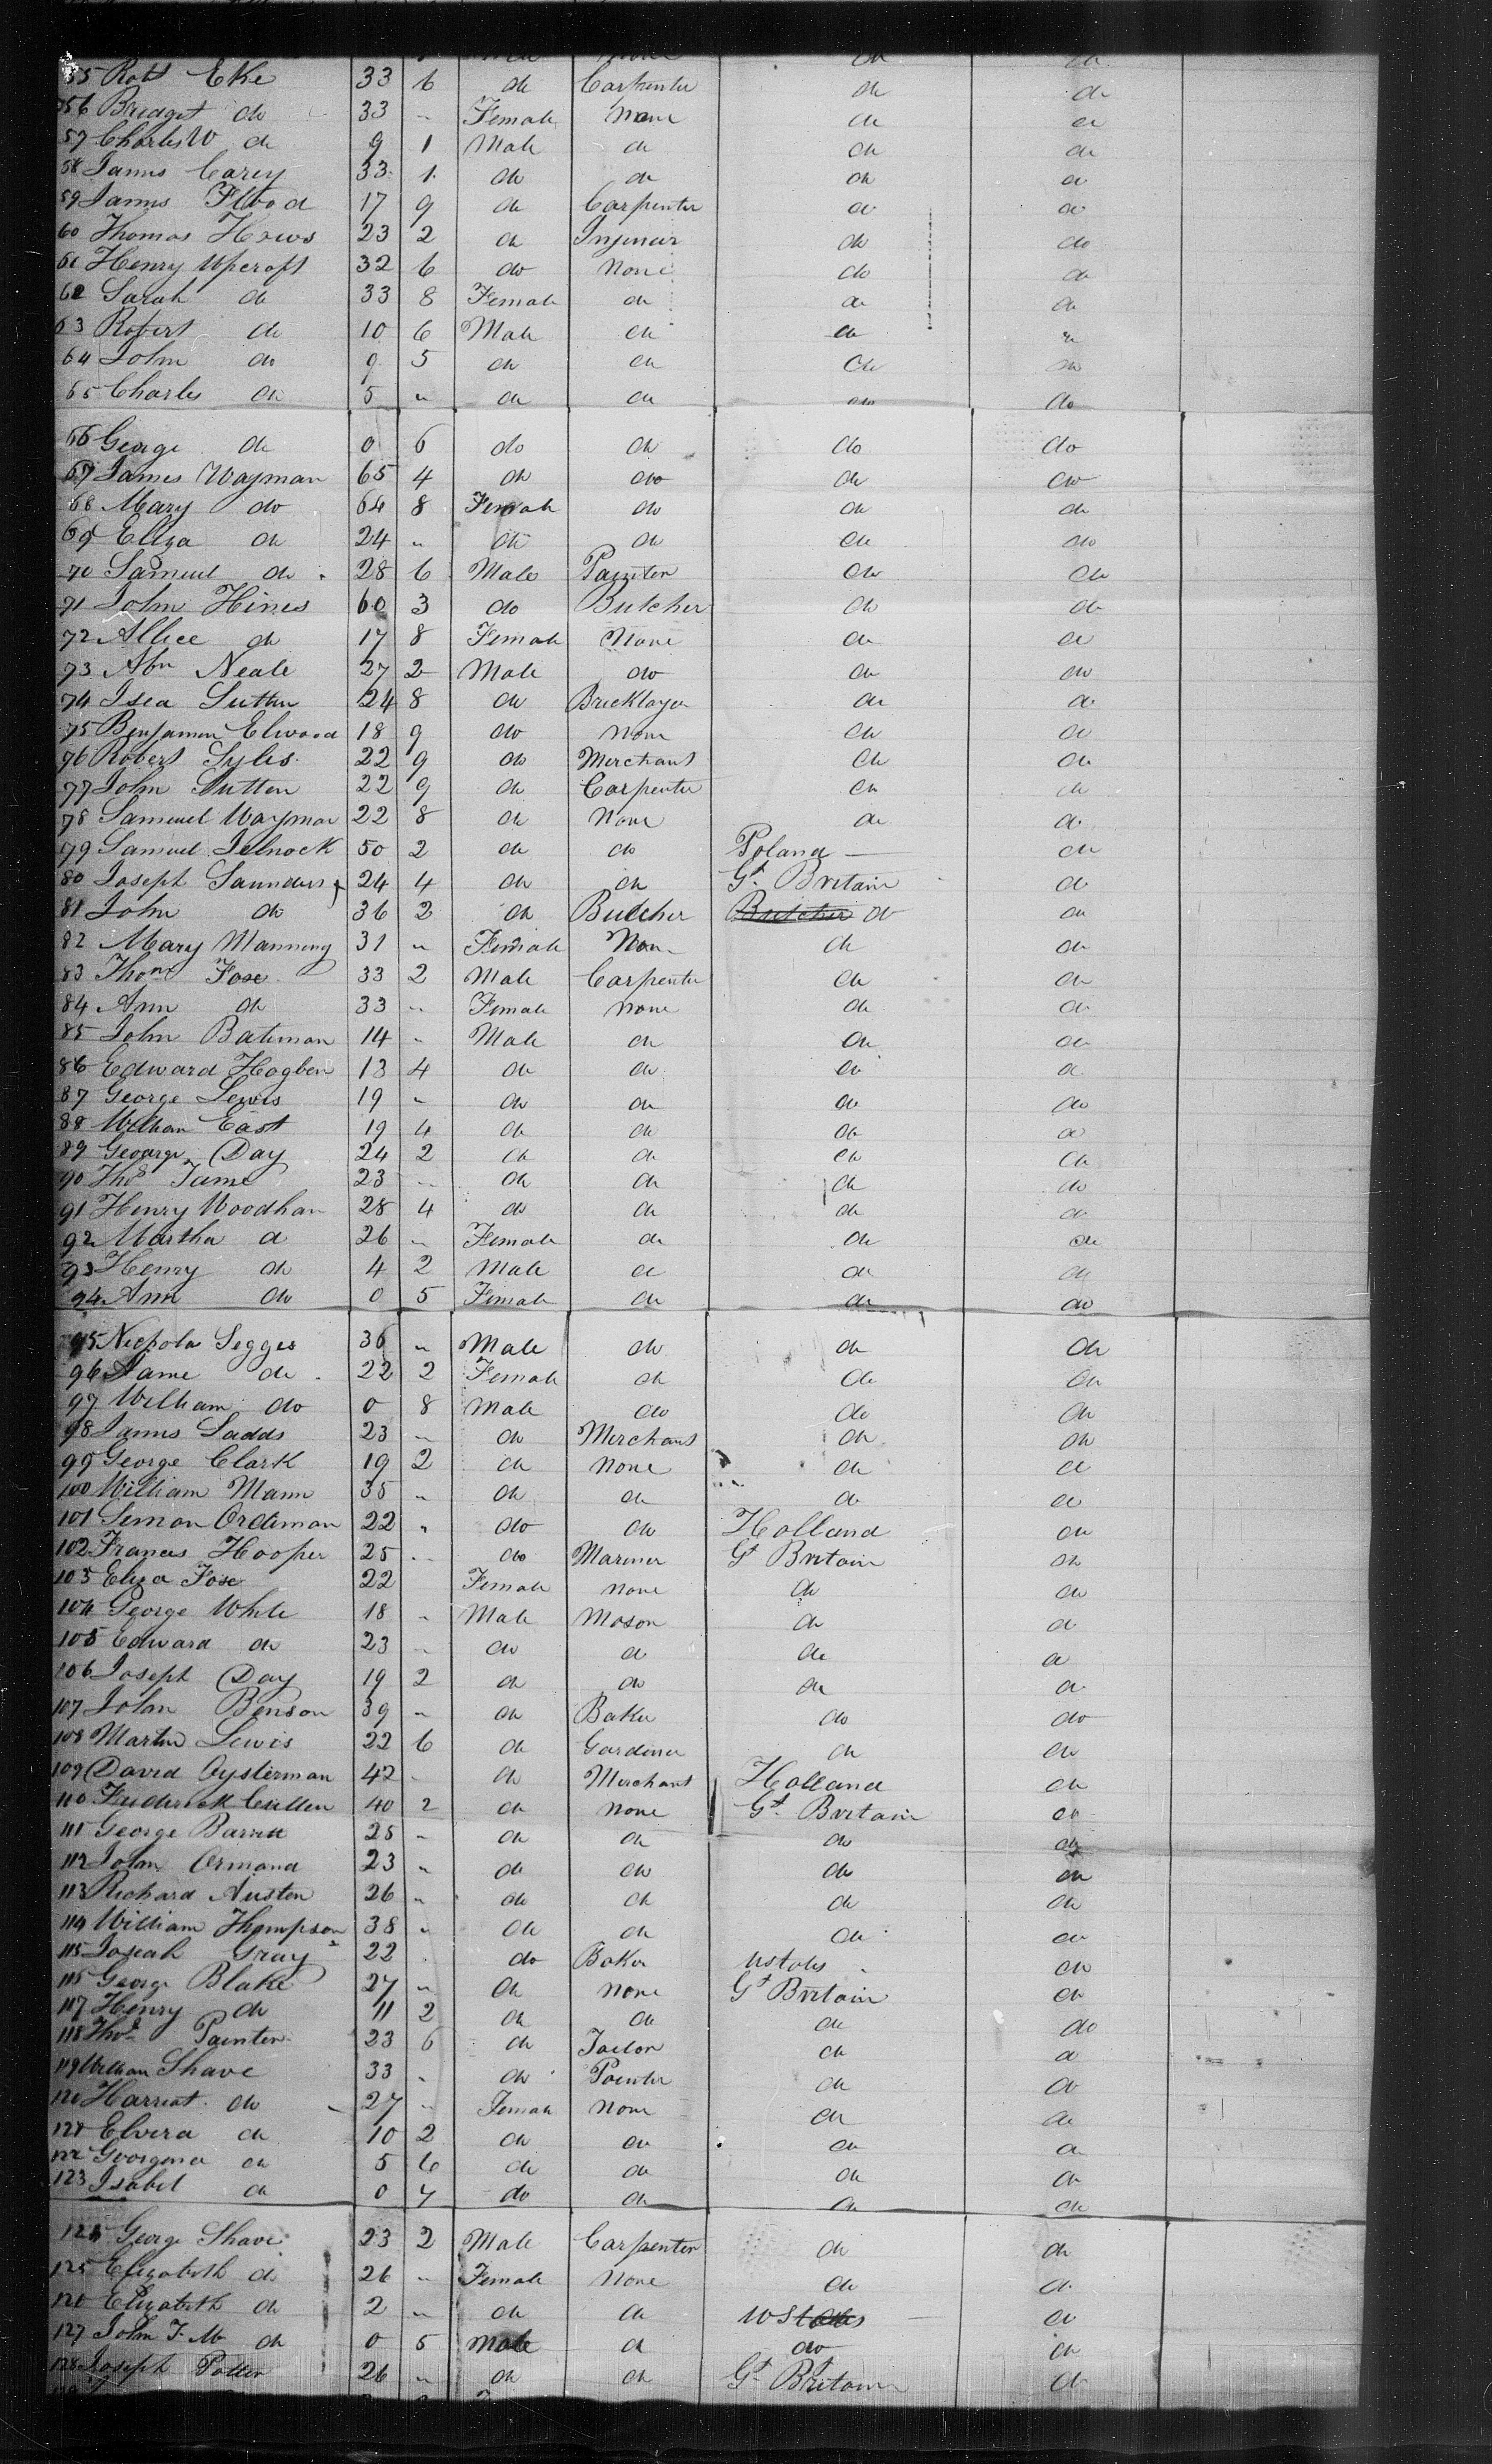 55 Robt Eke 33 6 do Carpenter do do
56 Bridget do 33 " Female None do do
57 Charles W do 9 1 Male do do do
58 James Carey 33 1 do do do do
59 James Flood 17 9 do Carpenter do do
60 Thomas Hows 23 2 do Ingenier do do
61 Henry Upcroft 32 6 do None do do
62 Sarah do 33 8 Female do do do
63 Robert do 10 6 Male do do do
64 John do 9 5 do do do do
65 Charles do 5 " do do do do
66 George do 0 6 do do do do
67 James Wayman 65 4 do do do do
68 Mary do 64 8 Female do do do
69 Eliza do 24 " do do do do
70 Samuel do 28 6 Male Painter do do
71 John Hines 60 3 do Butcher do do
72 Allice do 17 8 Female None do do
73 Abm Neale 27 2 Male do do do
74 Isea Sutton 24 8 do Bricklayer do do
75 Benjamin Elwood 18 9 do None do do
76 Robert Syles 22 9 do Merchant do do
77 John Sutton 22 9 do Carpenter do do
78 Samuel Wayman 22 8 do None do do
79 Samuel 50 2 do do Poland do
80 Joseph Saunders 24 4 do do Gt Britain do
81 John do 36 2 do Butcher Butcher do do
82 Mary Manning 31 " Female None do do
83 Thom Foxe 33 2 Male Carpenter do do
84 Ann do 33 " Female None do do
85 John Bateman 14 " Male do do do
86 Edward Hogben 13 4 do do do do
87 George Lewis 19 " do do do do
88 William East 19 4 do do do do
89 George Day 24 2 do do do do
90 Thos Tame 23 " do do do do
91 Henry Woodhan 28 4 do do do do
92 Martha do 26 " Female do do do
93 Henry do 4 2 Male do do do
94 Ann do 0 5 Female do do do
95 Nichola Segges 36 " Male do do do
96 Jame do 22 2 Female do do do
97 William do 0 8 Male do do do
98 James Sadds 23 " do Merchant do do
99 George Clark 19 2 do None do do
100 William Mann 35 " do do do do
101 Simon Ordiman 22 " do do Holland do
102 Francis Hooper 25 " do Mariner Gt Britain do
103 Eliza Foxe 22 Female None do do
104 George White 18 " Male Mason do do
105 Edward do 23 " do do do do
106 Joseph Day 19 2 do do do do
107 John Benson 39 " do Baker do do
108 Martin Lewis 22 6 do Gardiner do do
109 David Oysterman 42 " do Merchant Holland do
110 Frederick Cullen 40 2 do None Gt Britain do
111 George Barrett 25 " do do do do
112 John Ormand 23 " do do do do
113 Richard Austen 26 " do do do do
114 William Thompson 38 " do do do do
115 Josiah Gray 22 do Baker Ustates do
116 George Blake 27 " do None Gt Britain do
117 Henry do 11 2 do do do do
118 Thos Painter 23 6 do Tailor do do
119 William Shave 33 " do Painter do do
120 Harriat do 27 " Female None do do
121 Elvira do 10 2 do do do do
122 Georgena do 5 6 do do do do
123 Isabel do 0 7 do do do do
124 George Shave 23 2 Male Carpenter do do
125 Elizabeth do 26 " Female None do do
126 Elizabeth do 2 " do do UStates do
127 John do 0 5 Male do do do
128 Joseph Potter 26 " do do Gt Britain do